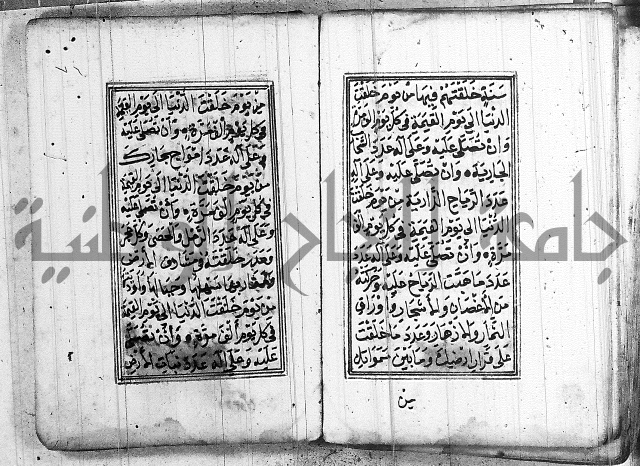 سنة خلقتهم فيها من يوم خلقت
الدنيا الى يوم القيمة في كل يوم الف مرة
وان تصلي عليه وعلى اله عدد السحاب
الجارية وان تصلي عليه وعلى اله
عدد الرياح الذارية من يوم خلقت
الدنيا الى يوم القيمة في كل يوم الف
مرة وان تصلي عليه وعلى اله عدد
عدد ما هبت الرياح عليه وحركته
من الاغصان والاشجار واوراق
الثمار والازهار وعدد ما خلقت
على قرار ارضك وما بين سمواتك
من
من يوم خلقت الدنيا الى يوم القيمة
في كل يوم الف مرة وان تصلي عليه
وعلى اله عدد امواج بحارك
من يوم خلقت الدنيا الى يوم القيمة
في كل يوم الف مرة وان تصلي عليه
وعلى اله عدد الرمل والحصى وكل حجر
ومدر خلقته في مشارق الارض
ومغاربها سهلها وجبالها واوديتها
من يوم خلقت الدنيا الى يوم القيمة
في كل يوم الف مرة وان تصلي
عليه وعلى اله عدد نبات الارض
جامعة النجاح الوطنية